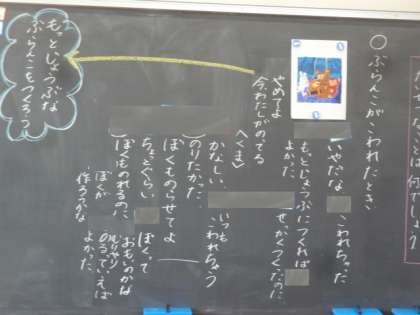 ○ぶらんこがこわれたとき
いやだな
こわれちゃった
もっとじょうぶにつくれば
よかった。
せっかくつくったのに
やめてよ
今、わたしがのってる
〈くま〉
かなしい、
いつも
こわれちゃう
のりたかった
ぼくものらせてよ
ちょっとぐらい
ぼくって
おもいのかな
ぼくものれるのに、
ぼくが
作ろうかな
よかった
もっとじょうぶな
ぶらんこをつくろう